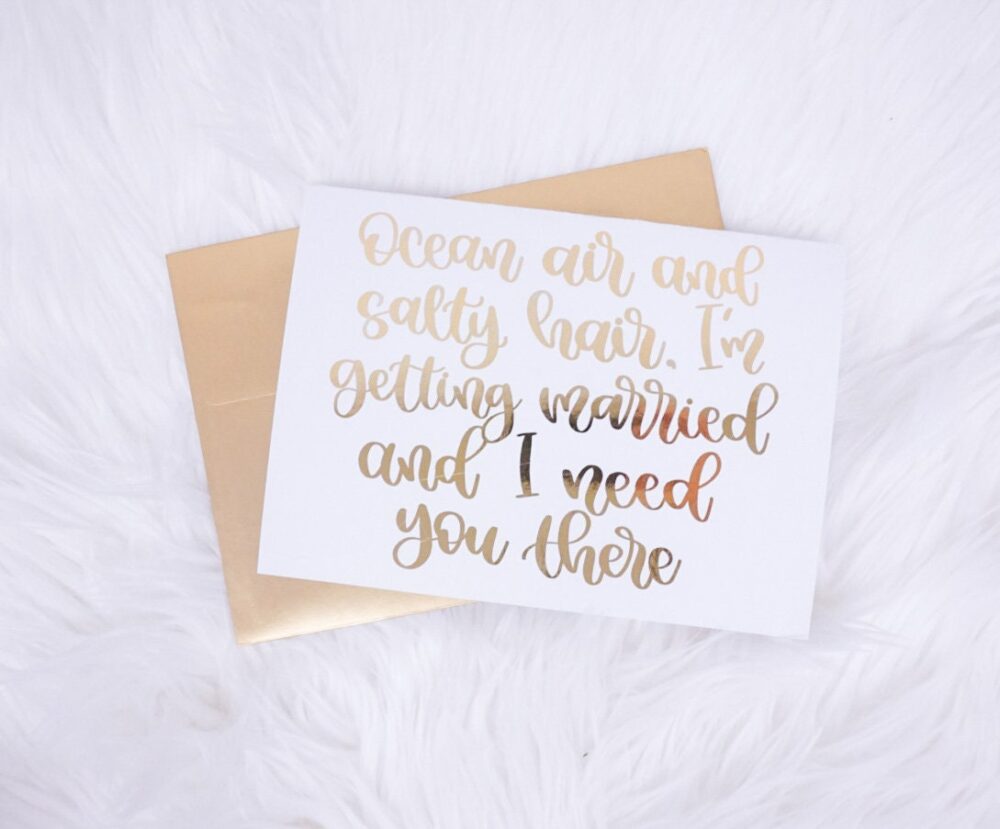 Ocean air and
salty hair. I'm
getting married
and I need
you there